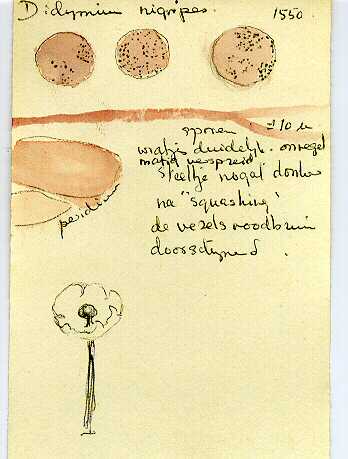 Didymium nigripes. 1550.
sporen ± 10 µ
wratjes duidelijk. onregel
matig verspreid
Steeltje nogal donker
na "squashing"
de vezels roodbruin
doorschijnend.
peridium